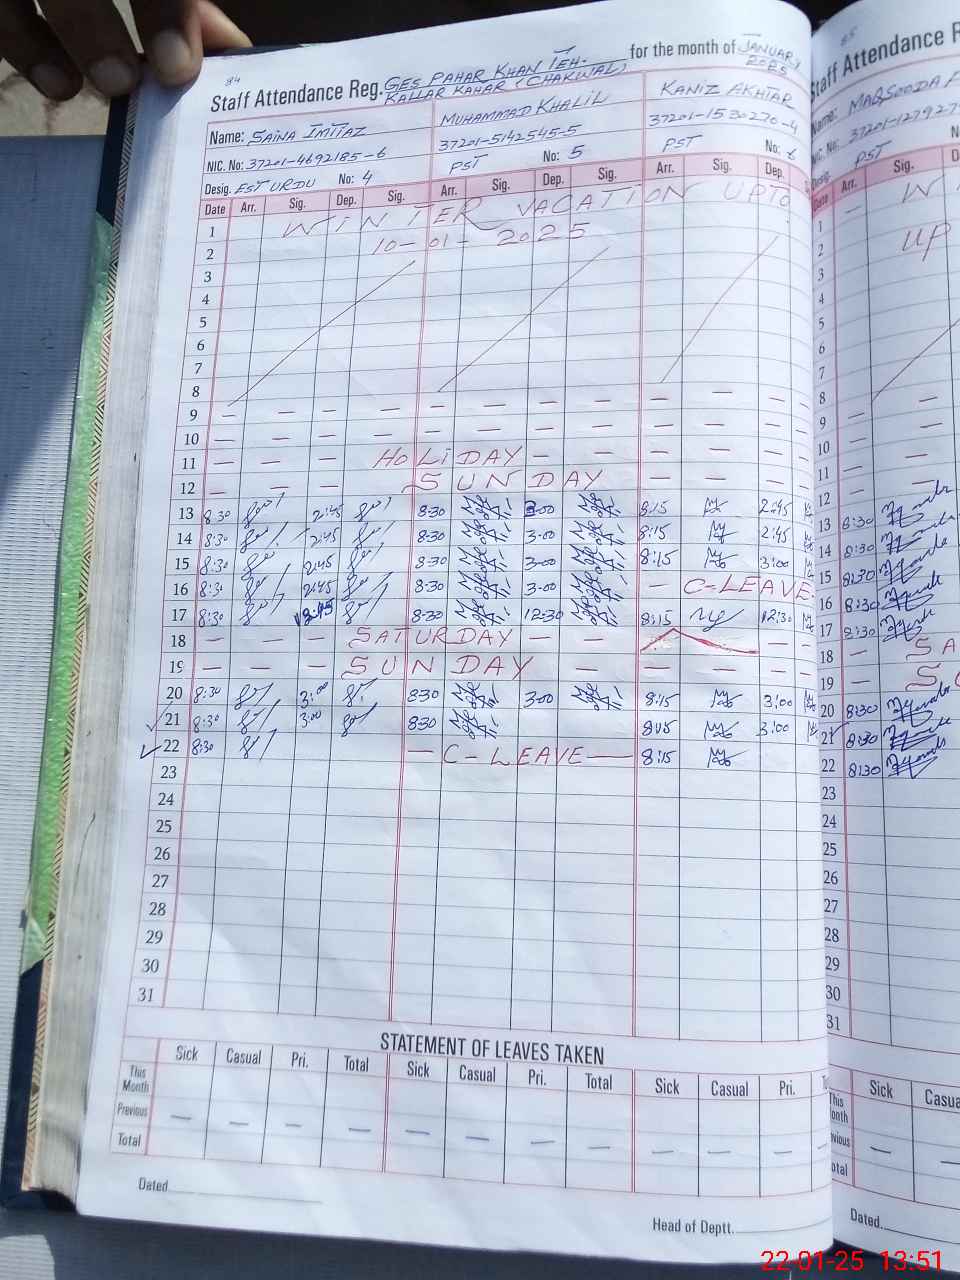 84
Staff Attendance Reg. GES PAHAR KHAN TEH. for the month of JANUARY
KALLAR KAHAR (CHAKWAL) 2025
Name: SAINA IMTIAZ MUHAMMAD KHALIL KANIZ AKHTAR
NIC. No: 37201-4692185-6 37201-5142545-5 37201-1530270-4
Desig. EST URDU No: 4 PST No: 5 PST No: 6
Date Arr. Sig. Dep. Sig. Arr. Sig. Dep. Sig. Arr. Sig. Dep.
1 WINTER VACATION UPTO
2 10-01-2025
3
4
5
6
7
8
9 — — — — — — — — — — —
10 — — — — — — — — — — —
11 — — — HOLIDAY — — — — —
12 — — — SUNDAY — — —
13 8:30 2:45 8:30 3:00 8:15 2:45
14 8:30 2:45 8:30 3:00 8:15 2:45
15 8:30 2:45 8:30 3:00 8:15 3:00
16 8:30 2:45 8:30 3:00 — C-LEAVE
17 8:30 12:45 8:30 12:30 8:15 12:30
18 — — — SATURDAY — — —
19 — — — SUNDAY — — — — —
20 8:30 3:00 8:30 3:00 8:15 3:00
21 8:30 3:00 8:30 8:15 3:00
22 8:30 — C-LEAVE — 8:15
23
24
25
26
27
28
29
30
31
STATEMENT OF LEAVES TAKEN
Sick Casual Pri. Total Sick Casual Pri. Total Sick Casual Pri.
This Month
Previous — — — — — — — — — — —
Total
Dated
Head of Deptt.
85
Staff Attendance R
Name: MAQSOODA
NIC. No: 37201-1279
Desig. PST
Date Arr. Sig.
1 — W
2 UP
3
4
5
6
7
8
9 — —
10 — —
11 — —
12 — —
13 8:30
14 8:30
15 8:30
16 8:30
17 8:30
18 — SA
19 — S
20 8:30
21 8:30
22 8:30
23
24
25
26
27
28
29
30
31
Sick Casua
This Month
Previous — —
Total
Dated.
22-01-25 13:51